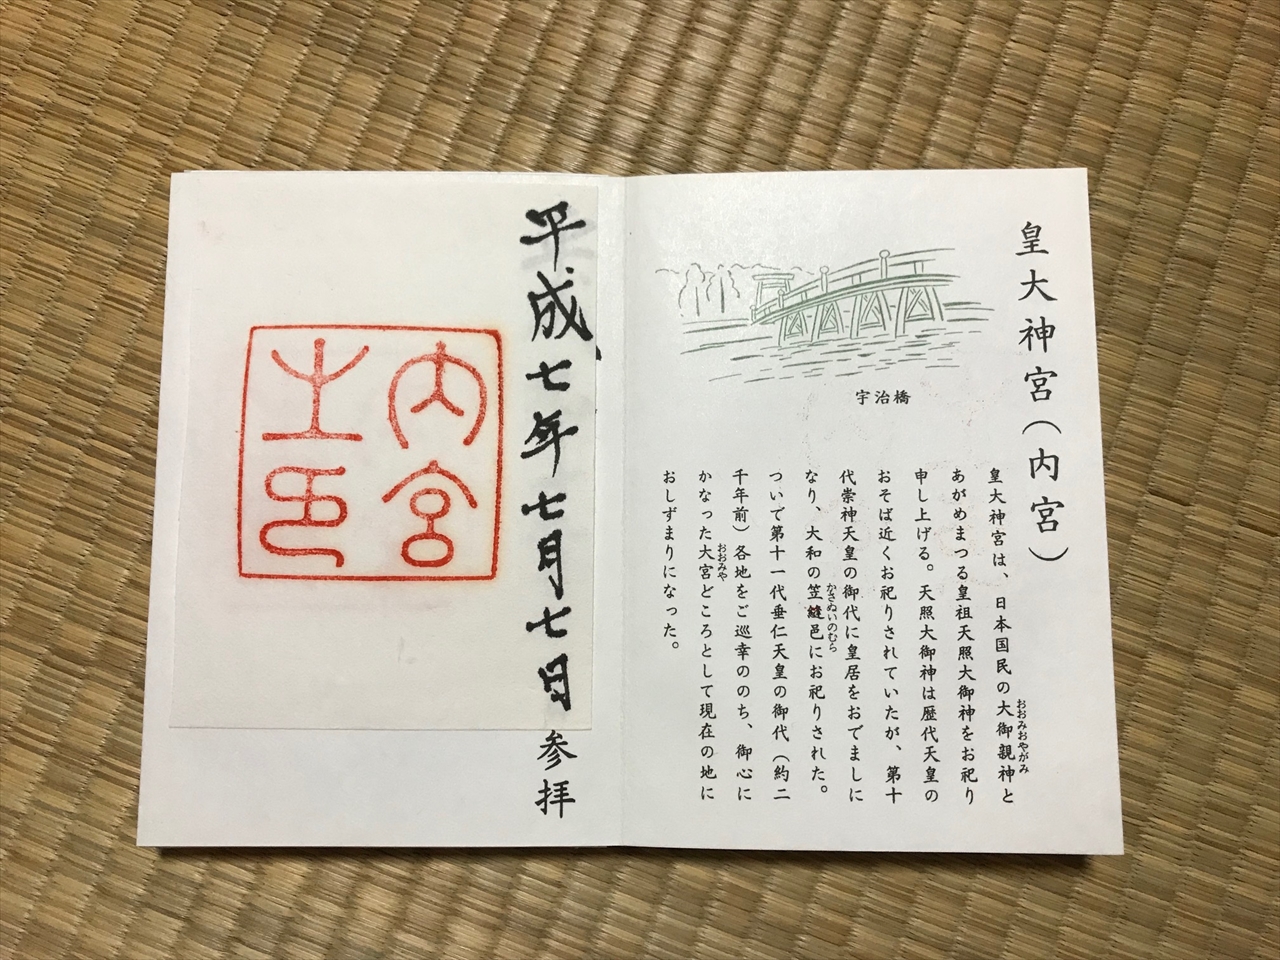 皇大神宮(内宮)
宇治橋
皇大神宮は、日本国民の大御親神と
おおみおやがみ
あがめまつる皇祖天照大御神をお祀り
申し上げる。天照大御神は歴代天皇の
おそば近くお祀りされていたが、第十
代崇神天皇の御代に皇居をおでましに
なり、大和の笠縫邑にお祀りされた。
かさぬいのむら
ついで第十一代垂仁天皇の御代(約二
千年前)各地をご巡幸ののち、御心に
かなった大宮どころとして現在の地に
おおみや
おしずまりになった。
平成七年七月七日参拝
内宮
之印